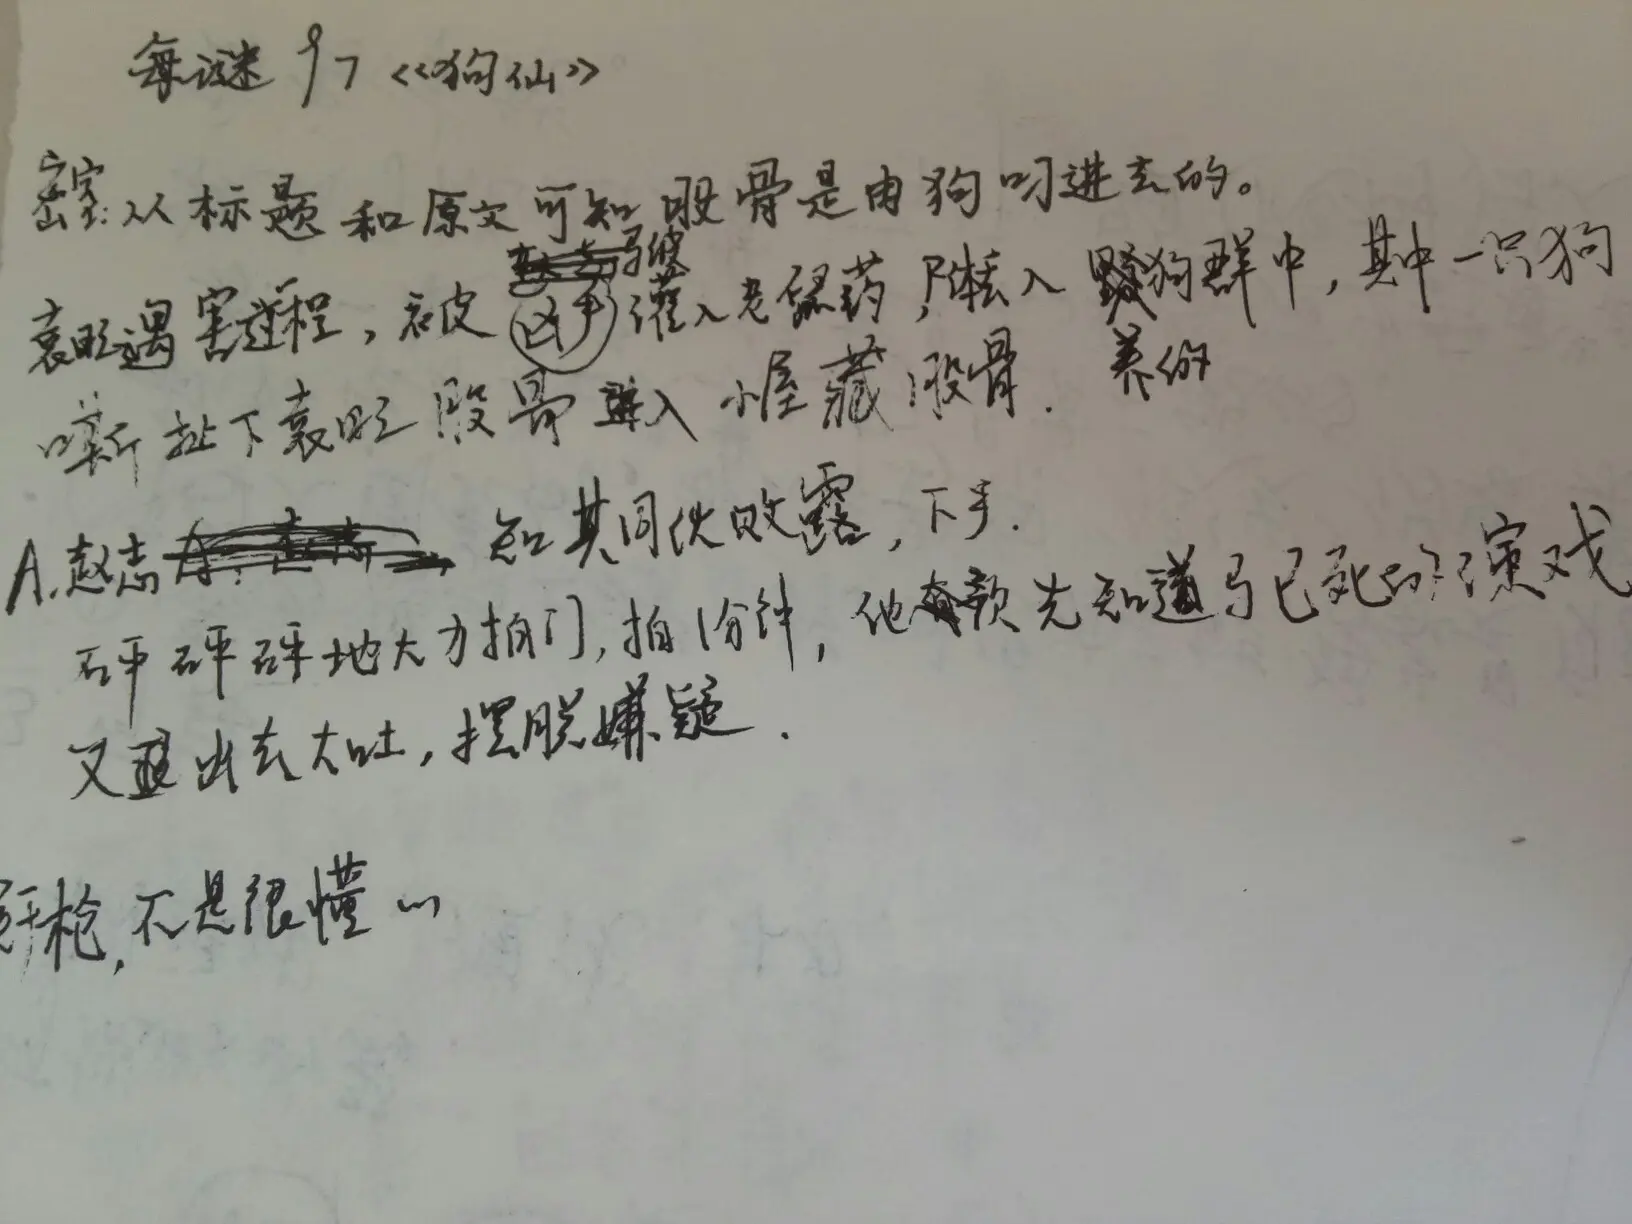 每谜97《狗仙》
密室:从标题和原文可知股骨是由狗叼进去的。
袁旺遇害过程,被凶手灌入老鼠药,体丢入狗群中,其中一只狗
马彼
养的
嘶扯下袁旺股骨进入小屋藏股骨.
A.赵志 知其同伙败露,下手.
砰砰砰地大力拍门,拍1分钟,他预先知道马已死的演戏
又逃出去大吐,摆脱嫌疑.
开枪,不是很懂…